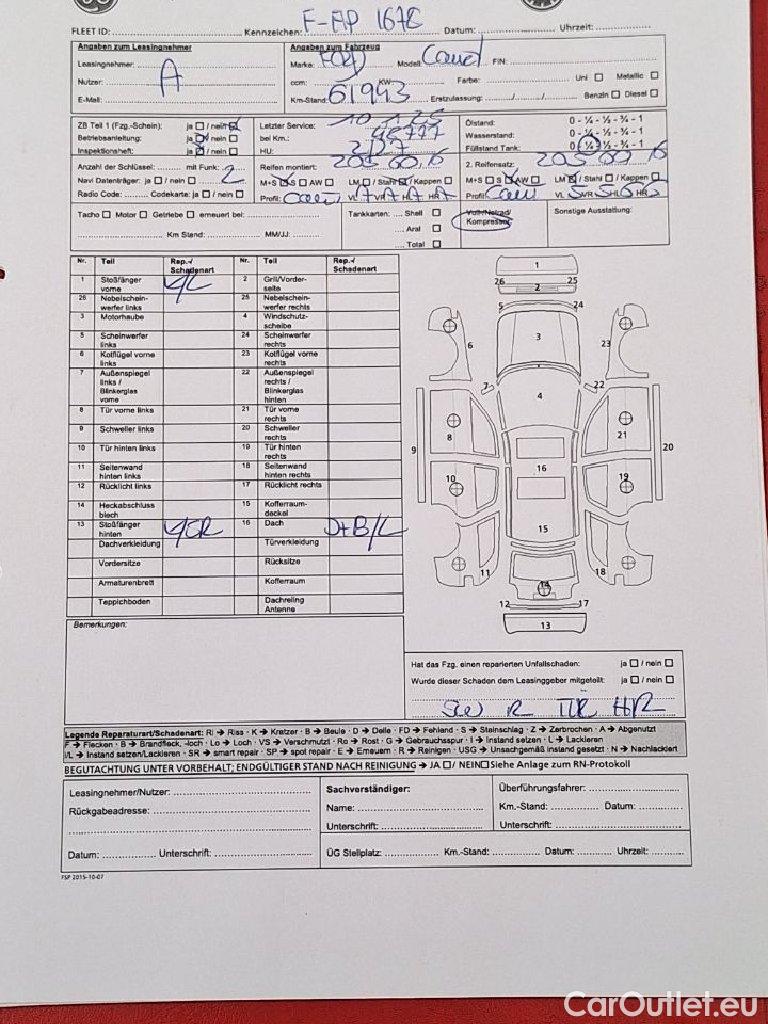 F-AP 167E
FLEET ID: Kennzeichen: Datum: Uhrzeit:
Angaben zum Leasingnehmer Angaben zum Fahrzeug
Leasingnehmer: Marke: Ford Modell: FIN:
Nutzer: A ccm: KW: Farbe: Uni Metallic
E-Mail: Km-Stand: 61943 Erstzulassung: Benzin Diesel
ZB Teil 1 (Fzg.-Schein): ja / nein Letzter Service: 10 1 25 Ölstand: 0 - ¼ - ½ - ¾ - 1
Betriebsanleitung: ja / nein bei Km.: Wasserstand: 0 - ¼ - ½ - ¾ - 1
Inspektionsheft: ja / nein HU: 2127 Füllstand Tank: 0 - ¼ - ½ - ¾ - 1
Anzahl der Schlüssel: mit Funk: 2 Reifen montiert: 205 60 16 2. Reifensatz: 205 60 16
Navi Datenträger: ja / nein M+S S AW LM / Stahl / Kappen M+S S AW LM / Stahl / Kappen
Radio Code: Codekarte: ja / nein Profil: VL 7 VR 7 HL 7 HR 7 Profil: VL 5 VR 5 HL 6 HR 5
Tacho Motor Getriebe erneuert bei: Tankkarten: Shell Voll-/Notrad/ Sonstige Ausstattung:
Kompressor
Km Stand: MM/JJ: Aral
Total
Nr. Teil Rep.-/ Schadenart Nr. Teil Rep.-/ Schadenart
1 Stoßfänger vorne 4/L 2 Grill/Vorderseite
26 Nebelscheinwerfer links 25 Nebelscheinwerfer rechts
3 Motorhaube 4 Windschutzscheibe
5 Scheinwerfer links 24 Scheinwerfer rechts
6 Kotflügel vorne links 23 Kotflügel vorne rechts
7 Außenspiegel links / Blinkerglas vorne 22 Außenspiegel rechts / Blinkerglas hinten
8 Tür vorne links 21 Tür vorne rechts
9 Schweller links 20 Schweller rechts
10 Tür hinten links 19 Tür hinten rechts
11 Seitenwand hinten links 18 Seitenwand hinten rechts
12 Rücklicht links 17 Rücklicht rechts
14 Heckabschlussblech 15 Kofferraumdeckel
13 Stoßfänger hinten 16 Dach D+B/L
Dachverkleidung Türverkleidung
Vordersitze Rücksitze
Armaturenbrett Kofferraum
Teppichboden Dachreling Antenne
1
26 25
2
5 24
3
6 23
7 22
4
8 21
9 20
10 19
16
15
11 18
14
12 17
13
Bemerkungen:
Hat das Fzg. einen reparierten Unfallschaden: ja / nein
Wurde dieser Schaden dem Leasinggeber mitgeteilt: ja / nein
SW R TÜR HR
Legende Reparaturart/Schadenart: Ri → Riss - K → Kratzer - B → Beule - D → Delle - FD → Fehlend - S → Steinschlag - Z → Zerbrochen - A → Abgenutzt
F → Flecken - B → Brandfleck, -loch - Lo → Loch - VS → Verschmutzt - Ro → Rost - G → Gebrauchsspur - I → Instand setzen - L → Lackieren
I/L → Instand setzen/Lackieren - SR → smart repair - SP → spot repair - E → Erneuern - R → Reinigen - USG → Unsachgemäß instand gesetzt - N → Nachlackiert
BEGUTACHTUNG UNTER VORBEHALT; ENDGÜLTIGER STAND NACH REINIGUNG → JA / NEIN Siehe Anlage zum RN-Protokoll
Leasingnehmer/Nutzer: Sachverständiger: Überführungsfahrer:
Rückgabeadresse: Name: Km.-Stand: Datum:
Unterschrift: Unterschrift:
Datum: Unterschrift: ÜG Stellplatz: Km.-Stand: Datum: Uhrzeit:
FSP 2015-10-07
CarOutlet.eu